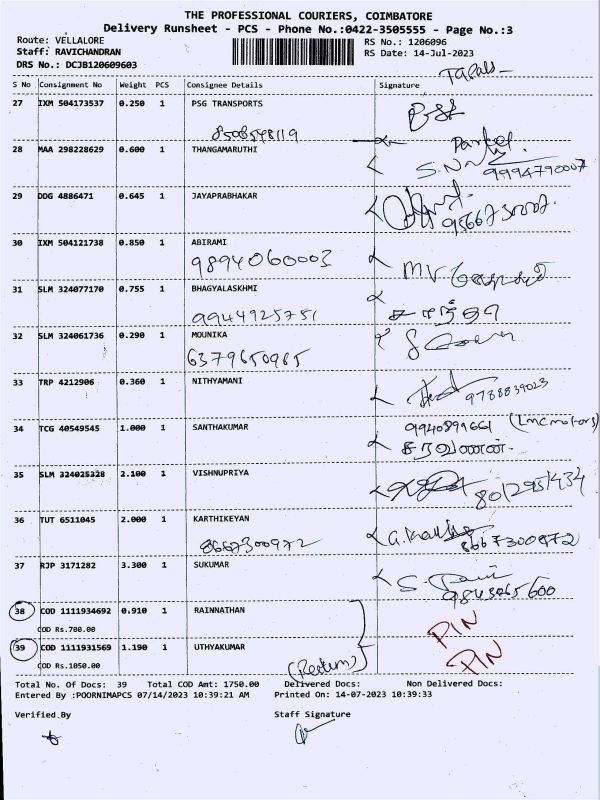 THE PROFESSIONAL COURIERS, COIMBATORE
Delivery Runsheet - PCS - Phone No.:0422-3505555 - Page No.:3
Route: VELLALORE
RS No.: 1206096
Staff: RAVICHANDRAN
RS Date: 14-Jul-2023
DRS No.: DCJB120609603
S No Consignment No Weight PCS Consignee Details Signature
27 IXM 504173537 0.250 1 PSG TRANSPORTS
8508548119
28 MAA 298228629 0.600 1 THANGAMARUTHI
9994790007
29 DDG 4886471 0.645 1 JAYAPRABHAKAR
30 IXM 504121738 0.850 1 ABIRAMI
9894060003
31 SLM 324077170 0.755 1 BHAGYALASKHMI
9944925751
32 SLM 324061736 0.290 1 MOUNIKA
6379650965
33 TRP 4212906 0.360 1 NITHYAMANI
9788839023
34 TCG 40549545 1.000 1 SANTHAKUMAR
9940899661
சரவணன்
35 SLM 324025328 2.100 1 VISHNUPRIYA
36 TUT 6511045 2.000 1 KARTHIKEYAN
8667300972 8667300972
37 RJP 3171282 3.300 1 SUKUMAR
38 COD 1111934692 0.910 1 RAINNATHAN
COD Rs.700.00
PIN
39 COD 1111931569 1.190 1 UTHYAKUMAR
PIN
COD Rs.1050.00
(Return)
Total No. Of Docs: 39 Total COD Amt: 1750.00 Delivered Docs: Non Delivered Docs:
Entered By :POORNIMAPCS 07/14/2023 10:39:21 AM Printed On: 14-07-2023 10:39:33
Verified By Staff Signature